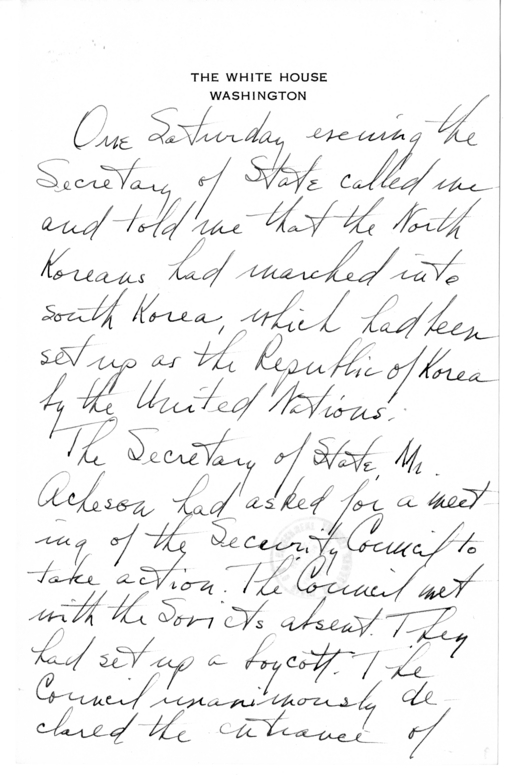 THE WHITE HOUSE
WASHINGTON
One Saturday evening the
Secretary of State called me
and told me that the North
Koreans had marched into
south Korea, which had been
set up as the Republic of Korea
by the United Nations.
The Secretary of State, Mr.
Acheson had asked for a meet-
ing of the Security Council to
take action. The Council met
with the Soviets absent. They
had set up a boycott. The
Council unanimously de-
clared the entrance of